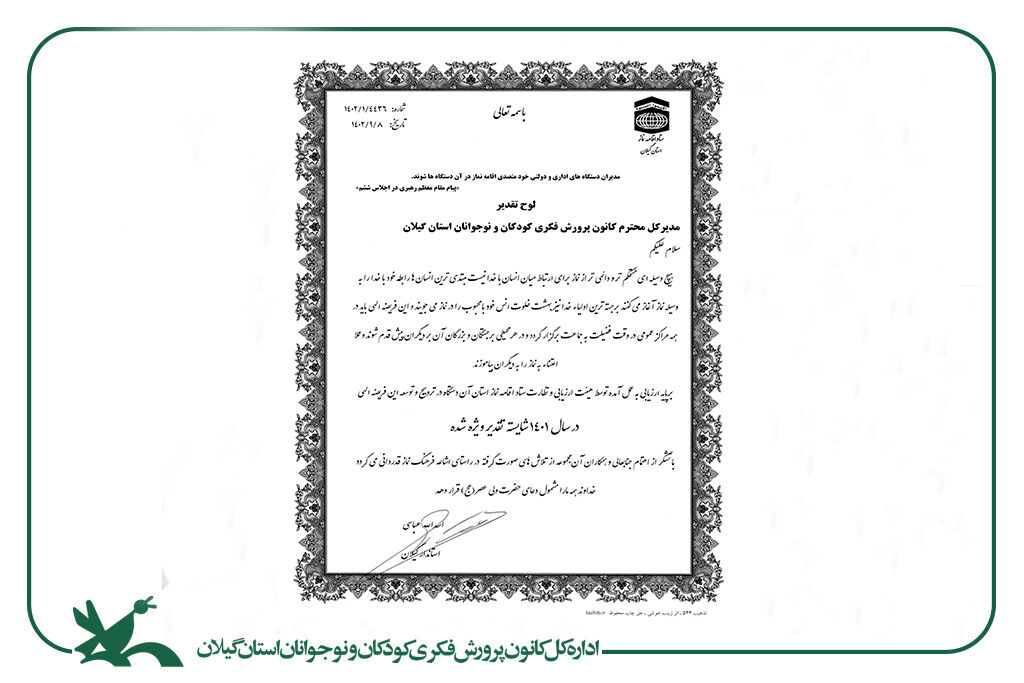 باسمه تعالی
شماره: ۱۴۰۲/۱/۴۴۳۶
تاریخ: ۱۴۰۲/۹/۸
ستاد اقامه نماز
استان گیلان
مدیران دستگاه های اداری و دولتی خود متصدی اقامه نماز در آن دستگاه ها شوند.
«پیام مقام معظم رهبری در اجلاس ششم»
لوح تقدیر
مدیرکل محترم کانون پرورش فکری کودکان و نوجوانان استان گیلان
سلام علیکم
هیچ وسیله ای مستحکم تر و دائمی تر از نماز برای ارتباط میان انسان با خدا نیست مبتدی ترین انسان ها رابطه خود با خدا را به
وسیله نماز آغاز می کنند برجسته ترین اولیاء خدا نیز بهشت خلوت انس خود با محبوب را در نماز می جویند و این فریضه الهی باید در
همه مراکز عمومی در وقت فضیلت به جماعت برگزار گردد و در هر محیطی برجستگان و بزرگان آن بر دیگران پیش قدم شوند و عملا
اعتناء به نماز را به دیگران بیاموزند.
بر پایه ارزیابی به عمل آمده توسط هیئت ارزیابی و نظارت ستاد اقامه نماز استان آن دستگاه در ترویج و توسعه این فریضه الهی
در سال ۱۴۰۱ شایسته تقدیر ویژه شده
با تشکر از اهتمام جنابعالی و همکاران آن مجموعه از تلاش های صورت گرفته در راستای اشاعه فرهنگ نماز قدردانی می گردد
خداوند همه ما را مشمول دعای حضرت ولی عصر (عج) قرار دهد
اسدالله عباسی
استاندار گیلان
تذهیب ۵۲۴ ، اثر زینب خوشی ، حق چاپ محفوظ tazhib.ir
اداره کل کانون پرورش فکری کودکان و نوجوانان استان گیلان